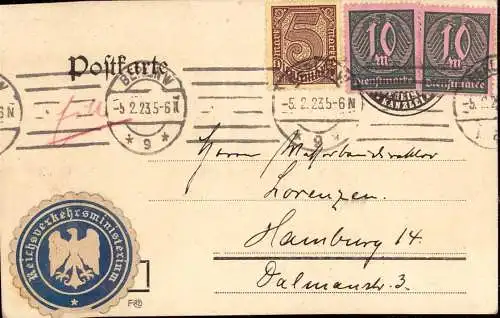 Postkarte
5
MARK
10
m
Dienstmarke
10
m
Dienstmarke
BERLIN W
-5.2.23.5-6N
* 9 *
-5.2.23.5-6N
9
KANZLEI
6N
Herrn Wasserbaudirektor
Lorenzen.
Hamburg 14.
Dalmannstr. 3.
Reichsverkehrsministerium